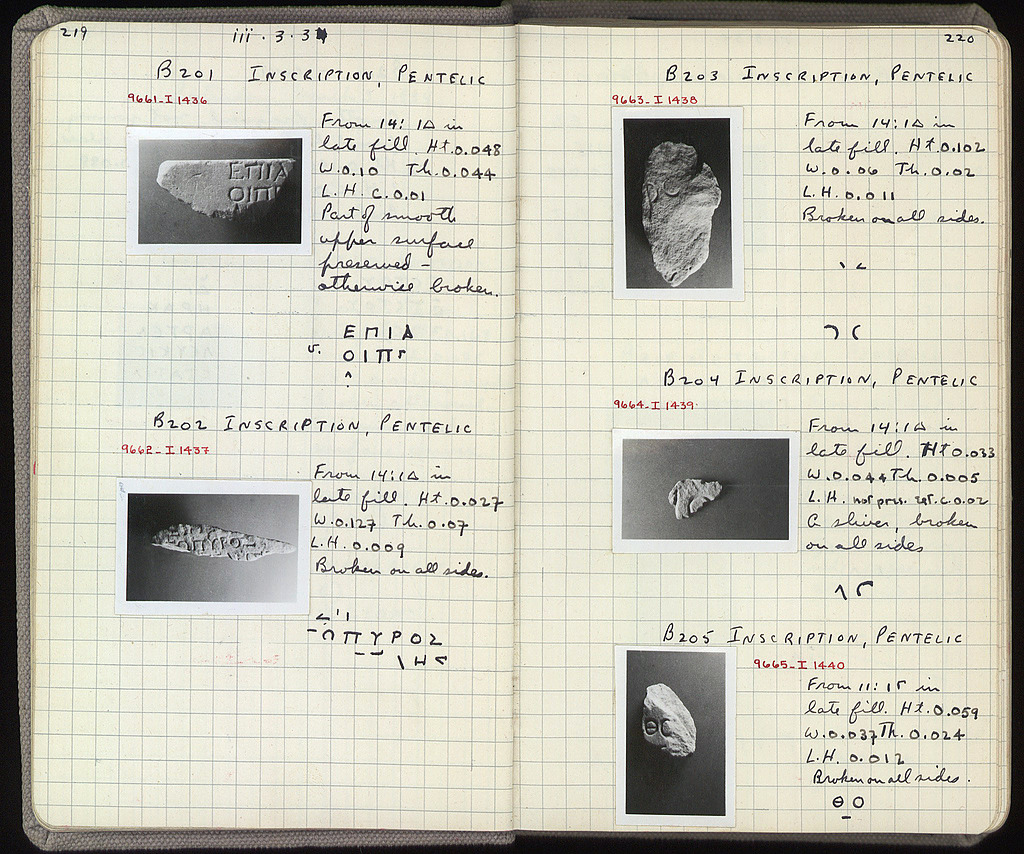 219
iii. 3. 3
B201 INSCRIPTION, PENTELIC
9661-I 1436
From 14: ΙΔ in
late fill. Ht. 0.048
W. 0.10 Th. 0.044
L.H. c. 0.01
Part of smooth
upper surface
preserved –
otherwise broken.
ΕΠΙΔ
v. ΟΙΠΓ
B202 INSCRIPTION, PENTELIC
9662-I 1437
From 14:ΙΔ in
late fill. Ht. 0.027
W. 0.127 Th. 0.07
L.H. 0.009
Broken on all sides.
ΠΥΡΟΣ
220
B203 INSCRIPTION, PENTELIC
9663-I 1438
From 14:ΙΔ in
late fill. Ht. 0.102
W. 0.06 Th. 0.02
L.H. 0.011
Broken on all sides.
B204 INSCRIPTION, PENTELIC
9664-I 1439
From 14:ΙΔ in
late fill. Ht 0.033
W. 0.044 Th. 0.005
L.H. not pres. c. 0.02
A sliver, broken
on all sides
B205 INSCRIPTION, PENTELIC
9665-I 1440
From 11: ΙΓ in
late fill. Ht. 0.059
W. 0.037 Th. 0.024
L.H. 0.012
Broken on all sides.
ΘΟ